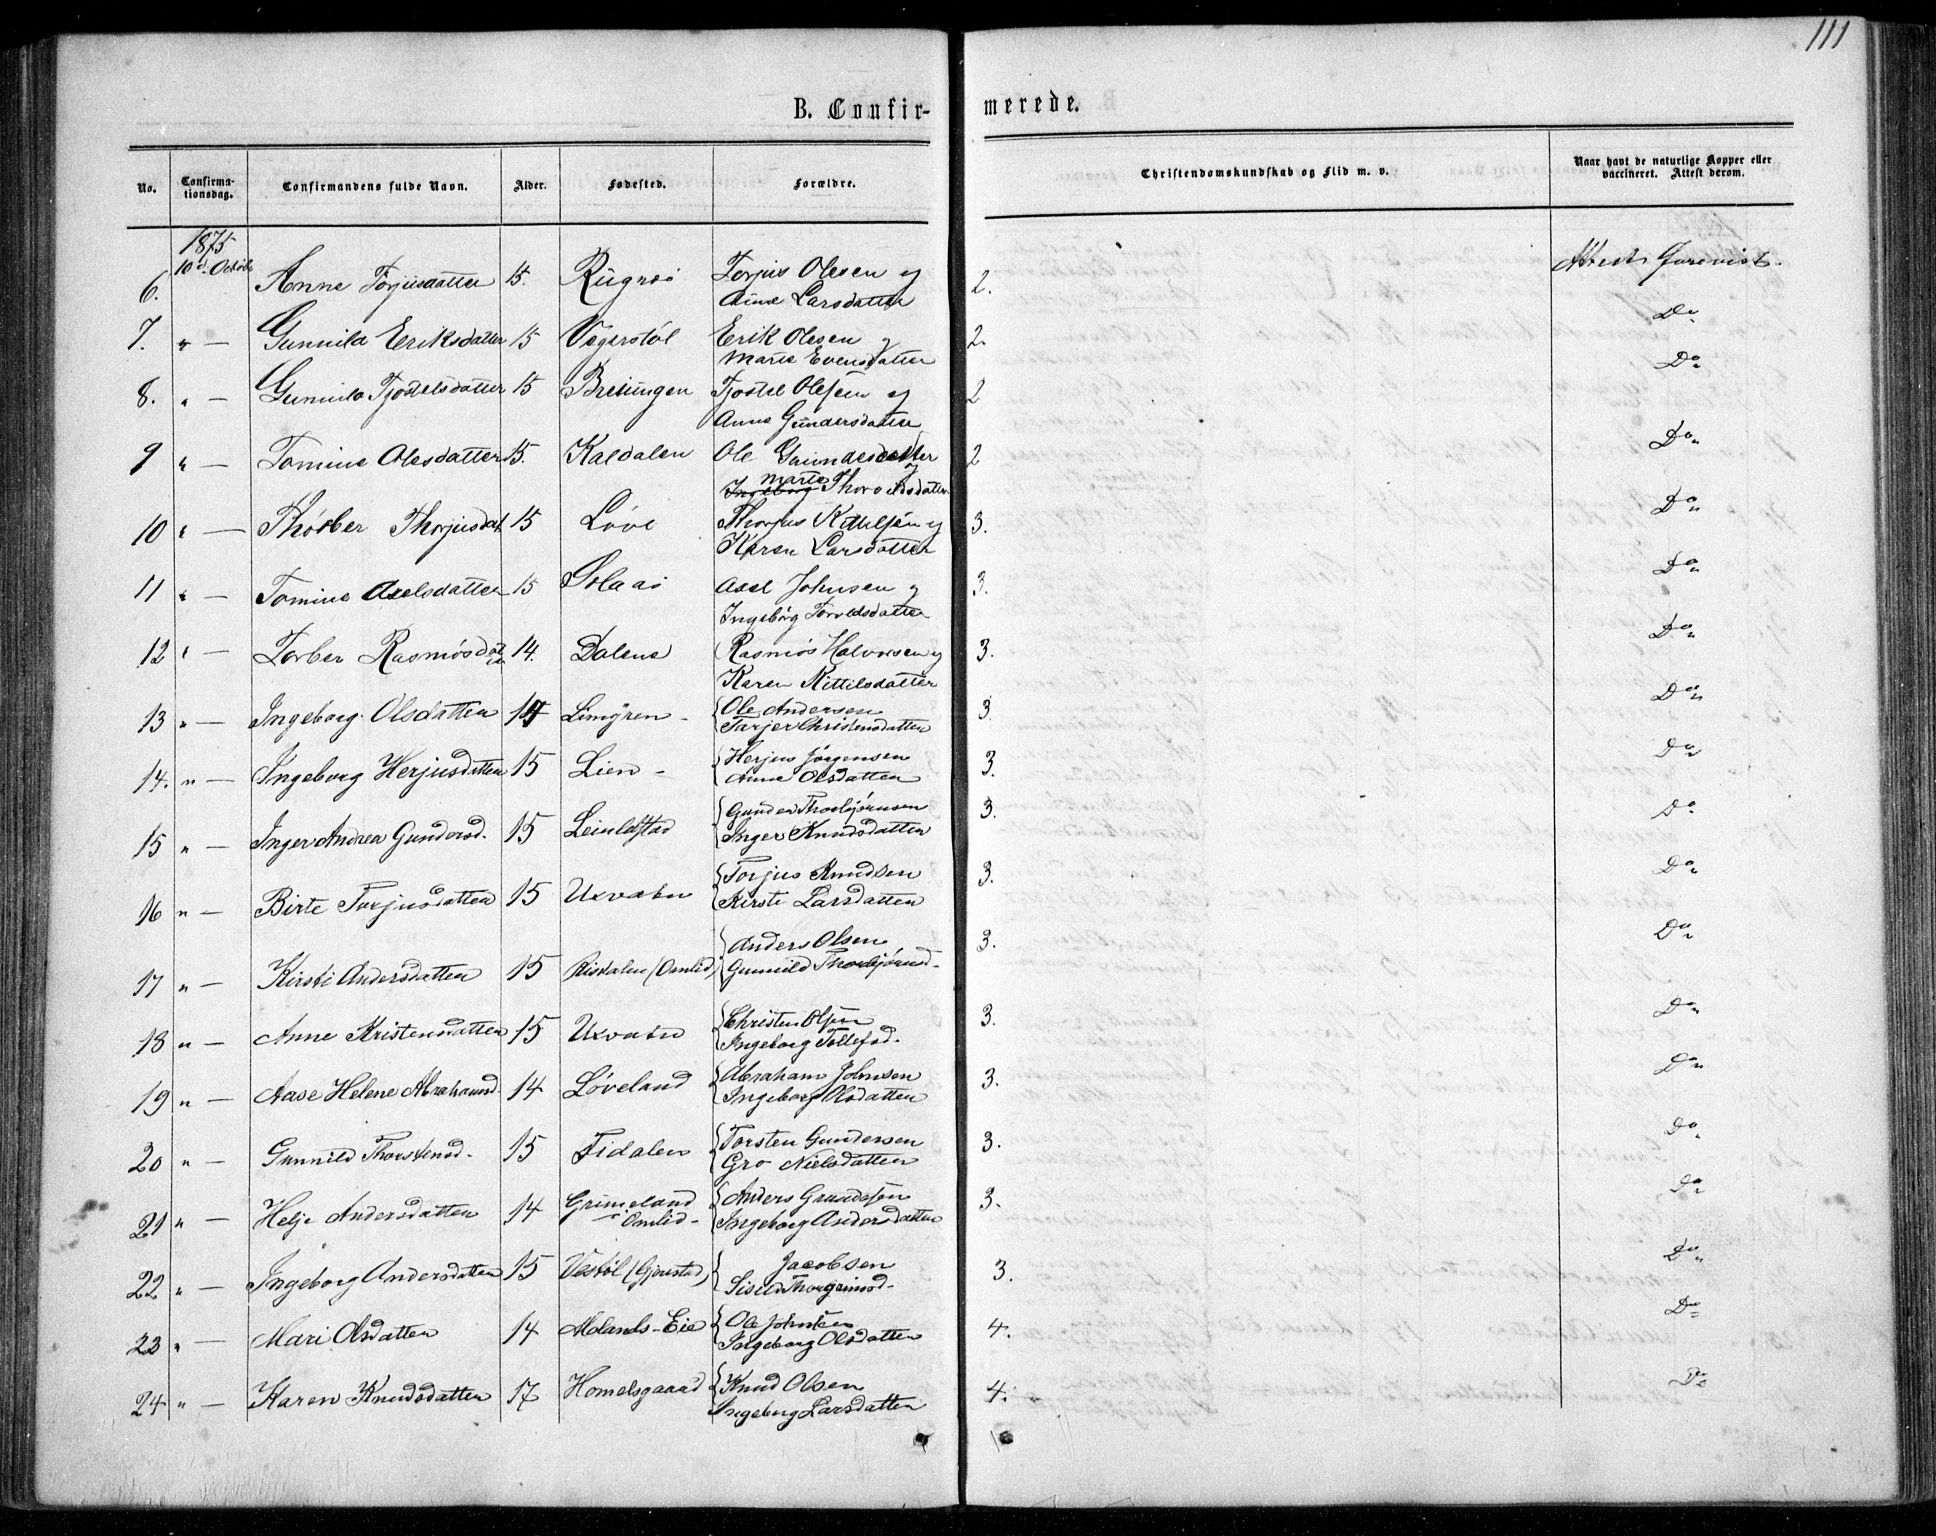 111
B. Confirmerede.
No. Confirmationsdag. Confirmandens fulde Navn. Alder. Fødested. Forældre. Christendomskundskab og Flid m. v. Naar havt de naturlige Kopper eller vaccineret. Attest derom.
1875
10de October
6. Anne Torjusdatter 15. Torjus Olesen og 2.
Anne Larsdatter
7. " — Gunnild Eriksdatter 15 Vegerstøl Erik Olesen og 2. Do
Marie Evensdatter
8. " — Gunnild Tjostelsdatter 15 Tjostel Olesen og 2 Do
Anne Gundersdatter
9 " — Tomine Olesdatter 15. Kaldalen Ole 2 Do
Ingeborg Marte Thoroldsdatter
10 " — Thorber Thorjusdat 15 Løve Thorjus Kittelsen og 3. Do
Karen Larsdatter
11 " — Tomine Axelsdatter 15 Solaas Axel Johnsen og 3. Do
Ingebørg Toroldsdatter
12 " — Torber Rasmusdatter 14. Dalene Rasmus Halvorsen og 3. Do
Karen Kittilsdatter
13 " — Ingeborg Olsdatter 14 Limyren - Ole Andersen 3. Do
Tarjer Christensdatter
14. " — Ingeborg Herjusdatter 15 Lien - Herjus Jørgensen 3. Do
Anne Olsdatter
15 " — Inger Andrea Gundersd. 15 Gunder Thorbjørnsen 3. Do
Inger Knudsdatter
16 " — Birte Torjusdatter 15 Uxvatn Torjus Knudsen 3. Do
Kirsti Larsdatter
17 " — Kirsti Andersdatter 15 Risdalen (Omlid) Anders Olsen 3. Do
Gunnild Thorbjørnsd-
18 " — Anne Kristensdatter 15 Uxvatn Christen Olsen 3. Do
Ingeborg Tollefsd.
19 " — Aase Helene Abrahamsd 14 Løveland Abraham Johnsen 3. Do
Ingeborg Olsdatter
20 " — Gunnild Thorstensd. 15 Fidalen Torsten Gundersen 3. Do
Gro Nielsdatter
21 " — Helje Andersdatter 14 Grimeland Omlid- Anders Gundersen 3. Do
Ingeborg Andersdatter
22 " — Ingeborg Andersdatter 15 Vestøl (Gjerstad) Jacobsen 3. Do
Siseld Thorgrimsd-
23 " — Mari Olsdatter 14 Molands-Eie Ole Johnsen 4. Do
Ingeborg Olsdatter
24 " — Karen Knudsdatter 17 Homelsgaard Knud Olsen 4. Do
Ingeborg Larsdatter